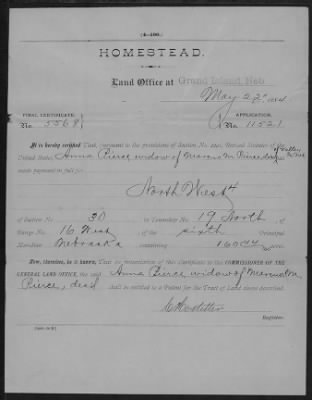 (4—196.)
HOMESTEAD.
Land Office at Grand Island, Neb
May 22d 1884
FINAL CERTIFICATE.
APPLICATION.
No. 5568
No. 11521
It is hereby certified That, pursuant to the provisions of Section No. 2291, Revised Statutes of the
United States, Anna Pierce, widow of Pierce, dec'd of Valley Co Neb
made payment in full for
North West 4
of Section No. 30 in Township No. 19 North, of
Range No. 16 West of the sixth Principal
Meridian Nebraska containing 160 acres.
Now, therefore, be it known, That on presentation of this Certificate to the COMMISSIONER OF THE
GENERAL LAND OFFICE, the said Anna Pierce, widow of
Pierce, dead shall be entitled to a Patent for the Tract of Land above described.
Register.